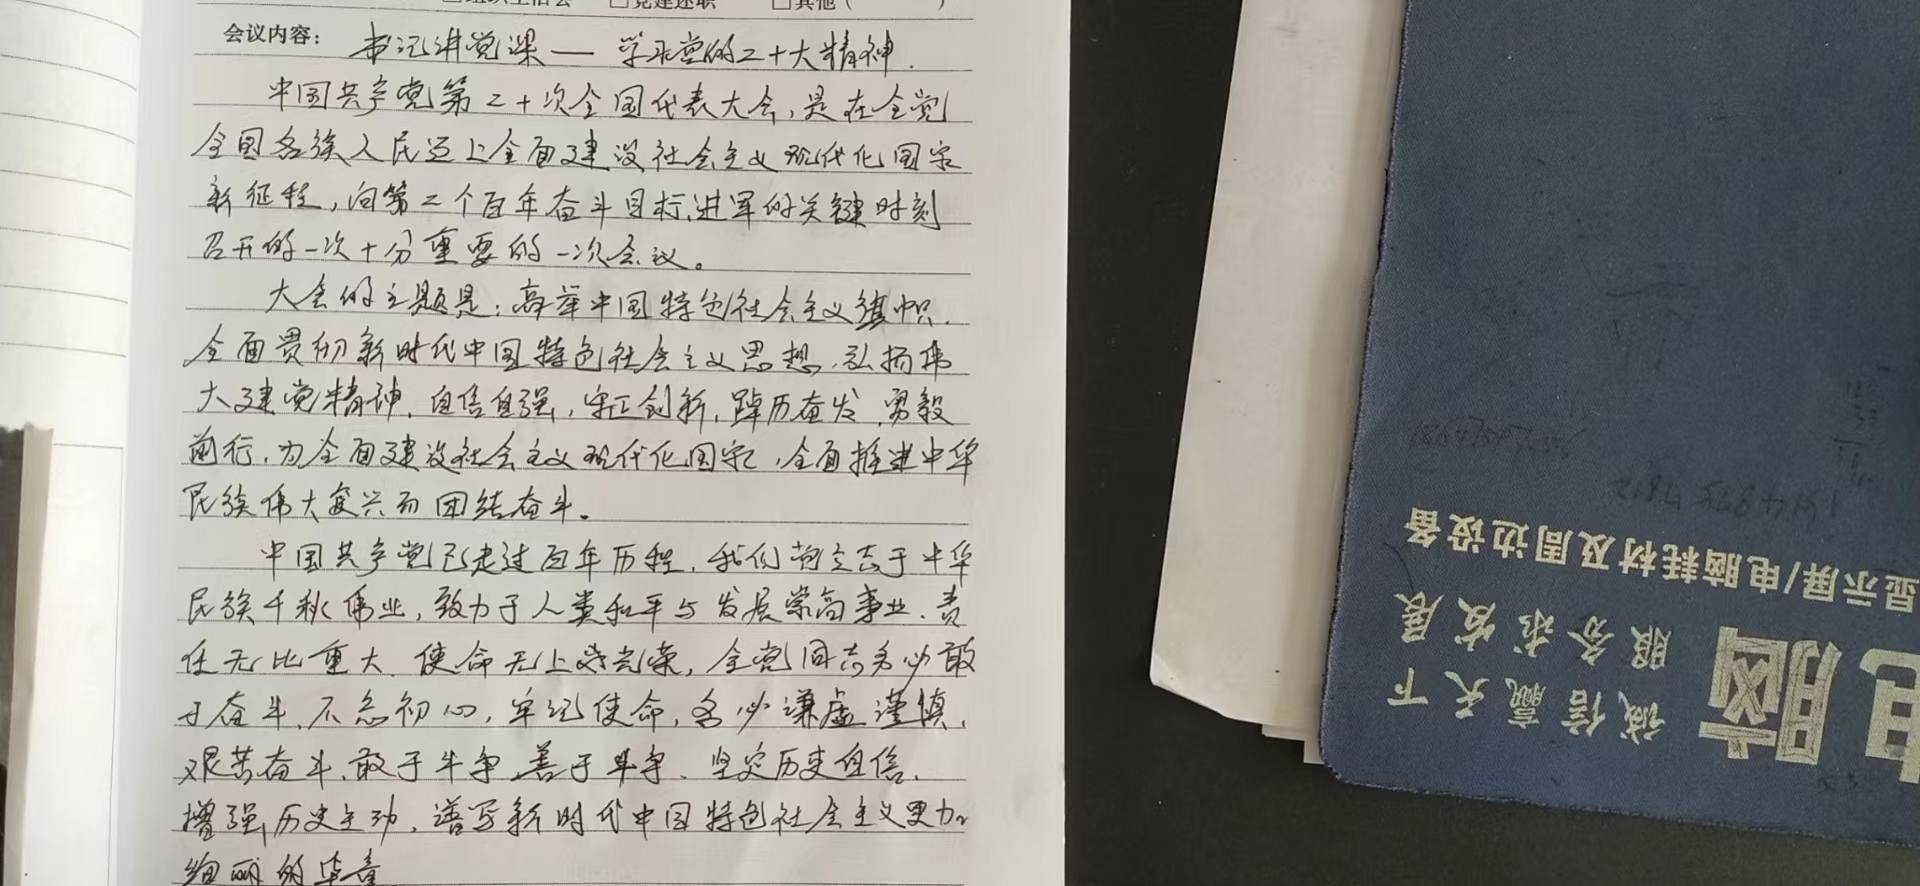 □组织生活会 □党建述职 □其他（ ）
会议内容： 书记讲党课 — 学习党的二十大精神.
中国共产党第二十次全国代表大会，是在全党
全国各族人民迈上全面建设社会主义现代化国家
新征程，向第二个百年奋斗目标进军的关键时刻
召开的一次十分重要的一次会议。
大会的主题是：高举中国特色社会主义旗帜，
全面贯彻新时代中国特色社会主义思想，弘扬伟
大建党精神，自信自强，守正创新，踔厉奋发，勇毅
前行，为全面建设社会主义现代化国家，全面推进中华
民族伟大复兴而团结奋斗。
中国共产党已走过百年历程，我们党立志于中华
民族千秋伟业，致力于人类和平与发展崇高事业，责
任无比重大，使命无上光荣，全党同志务必敢
于奋斗，不忘初心，牢记使命，务必谦虚谨慎，
艰苦奋斗，敢于斗争，善于斗争，坚定历史自信，
增强历史主动，谱写新时代中国特色社会主义更加
绚丽的华章
显示屏/电脑耗材及周边设备
服务求发展
诚信赢天下
电脑